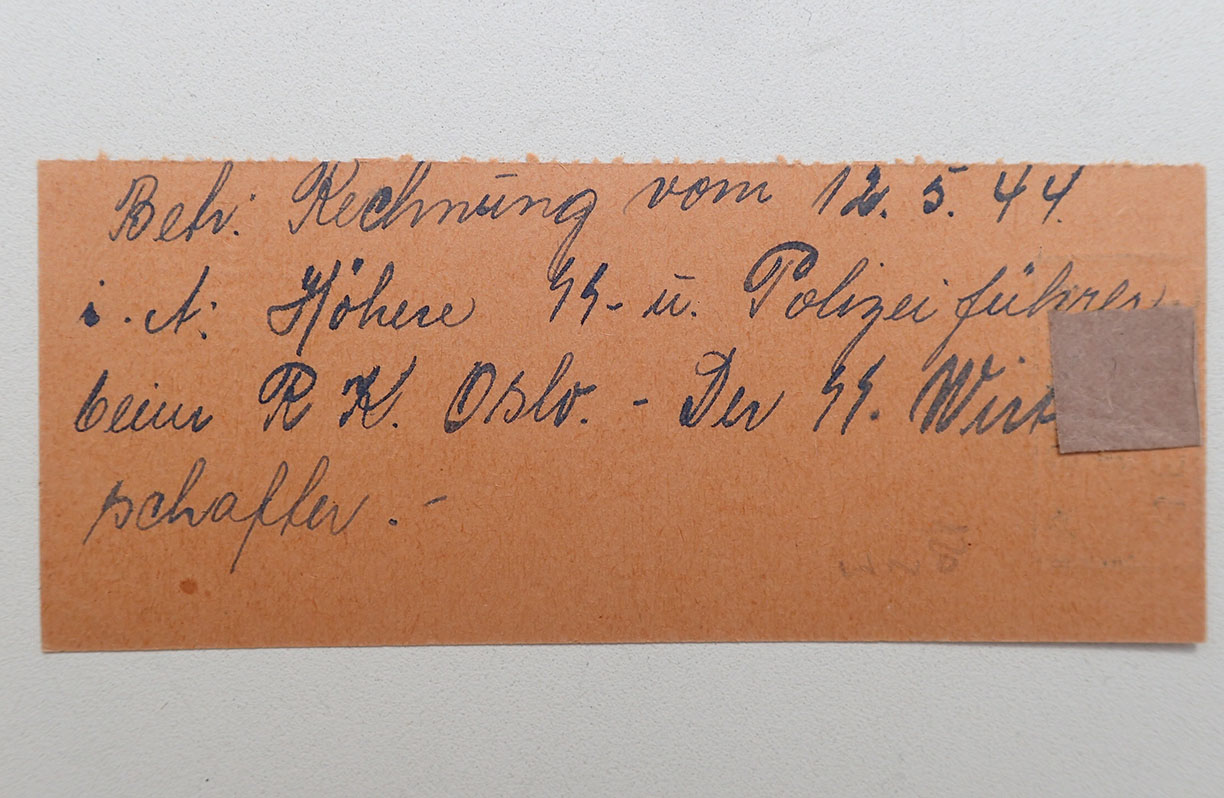 Betr: Rechnung vom 12. 5. 44.
i. A: Höhere SS- u. Polizeiführer
beim R K. Oslo. - Der SS. Wirt
schafter. -